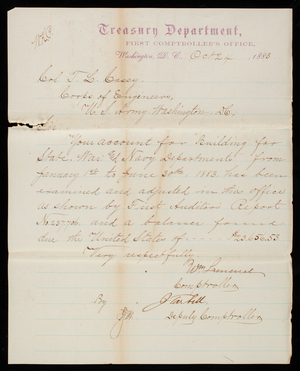 Treasury Department,
FIRST COMPTROLLER'S OFFICE,
Washington, D. C., Oct 24 1883
Col T. L. Casey
Corps of Engineers,
U. S. Army, Washington, DC,
Sir:
Your account for Building for
State, War & Navy Departments from
January 1st to June 30th 1883. has been
examined and adjusted in this Office
as shown by First Auditors Report
and a balance found
due the United States of
Very respectfully
Wm Lawrence
Comptroller
By
J Tarbell
Deputy Comptroller